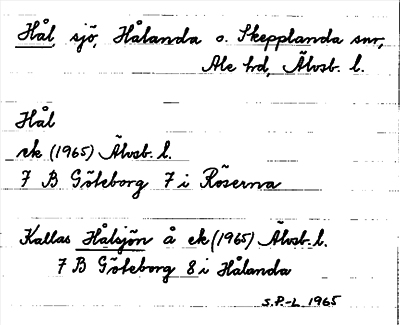 Hål, sjö, Hålanda o. Skepplanda snr,
Ale hd, Älvsb. l.
Hål
ek (1965) Älvsb. l.
7 B Göteborg 7 i Röserna
Kallas Hålsjön å ek (1965) Älvsb. l.
7 B Göteborg 8 i Hålanda
S.P-L 1965